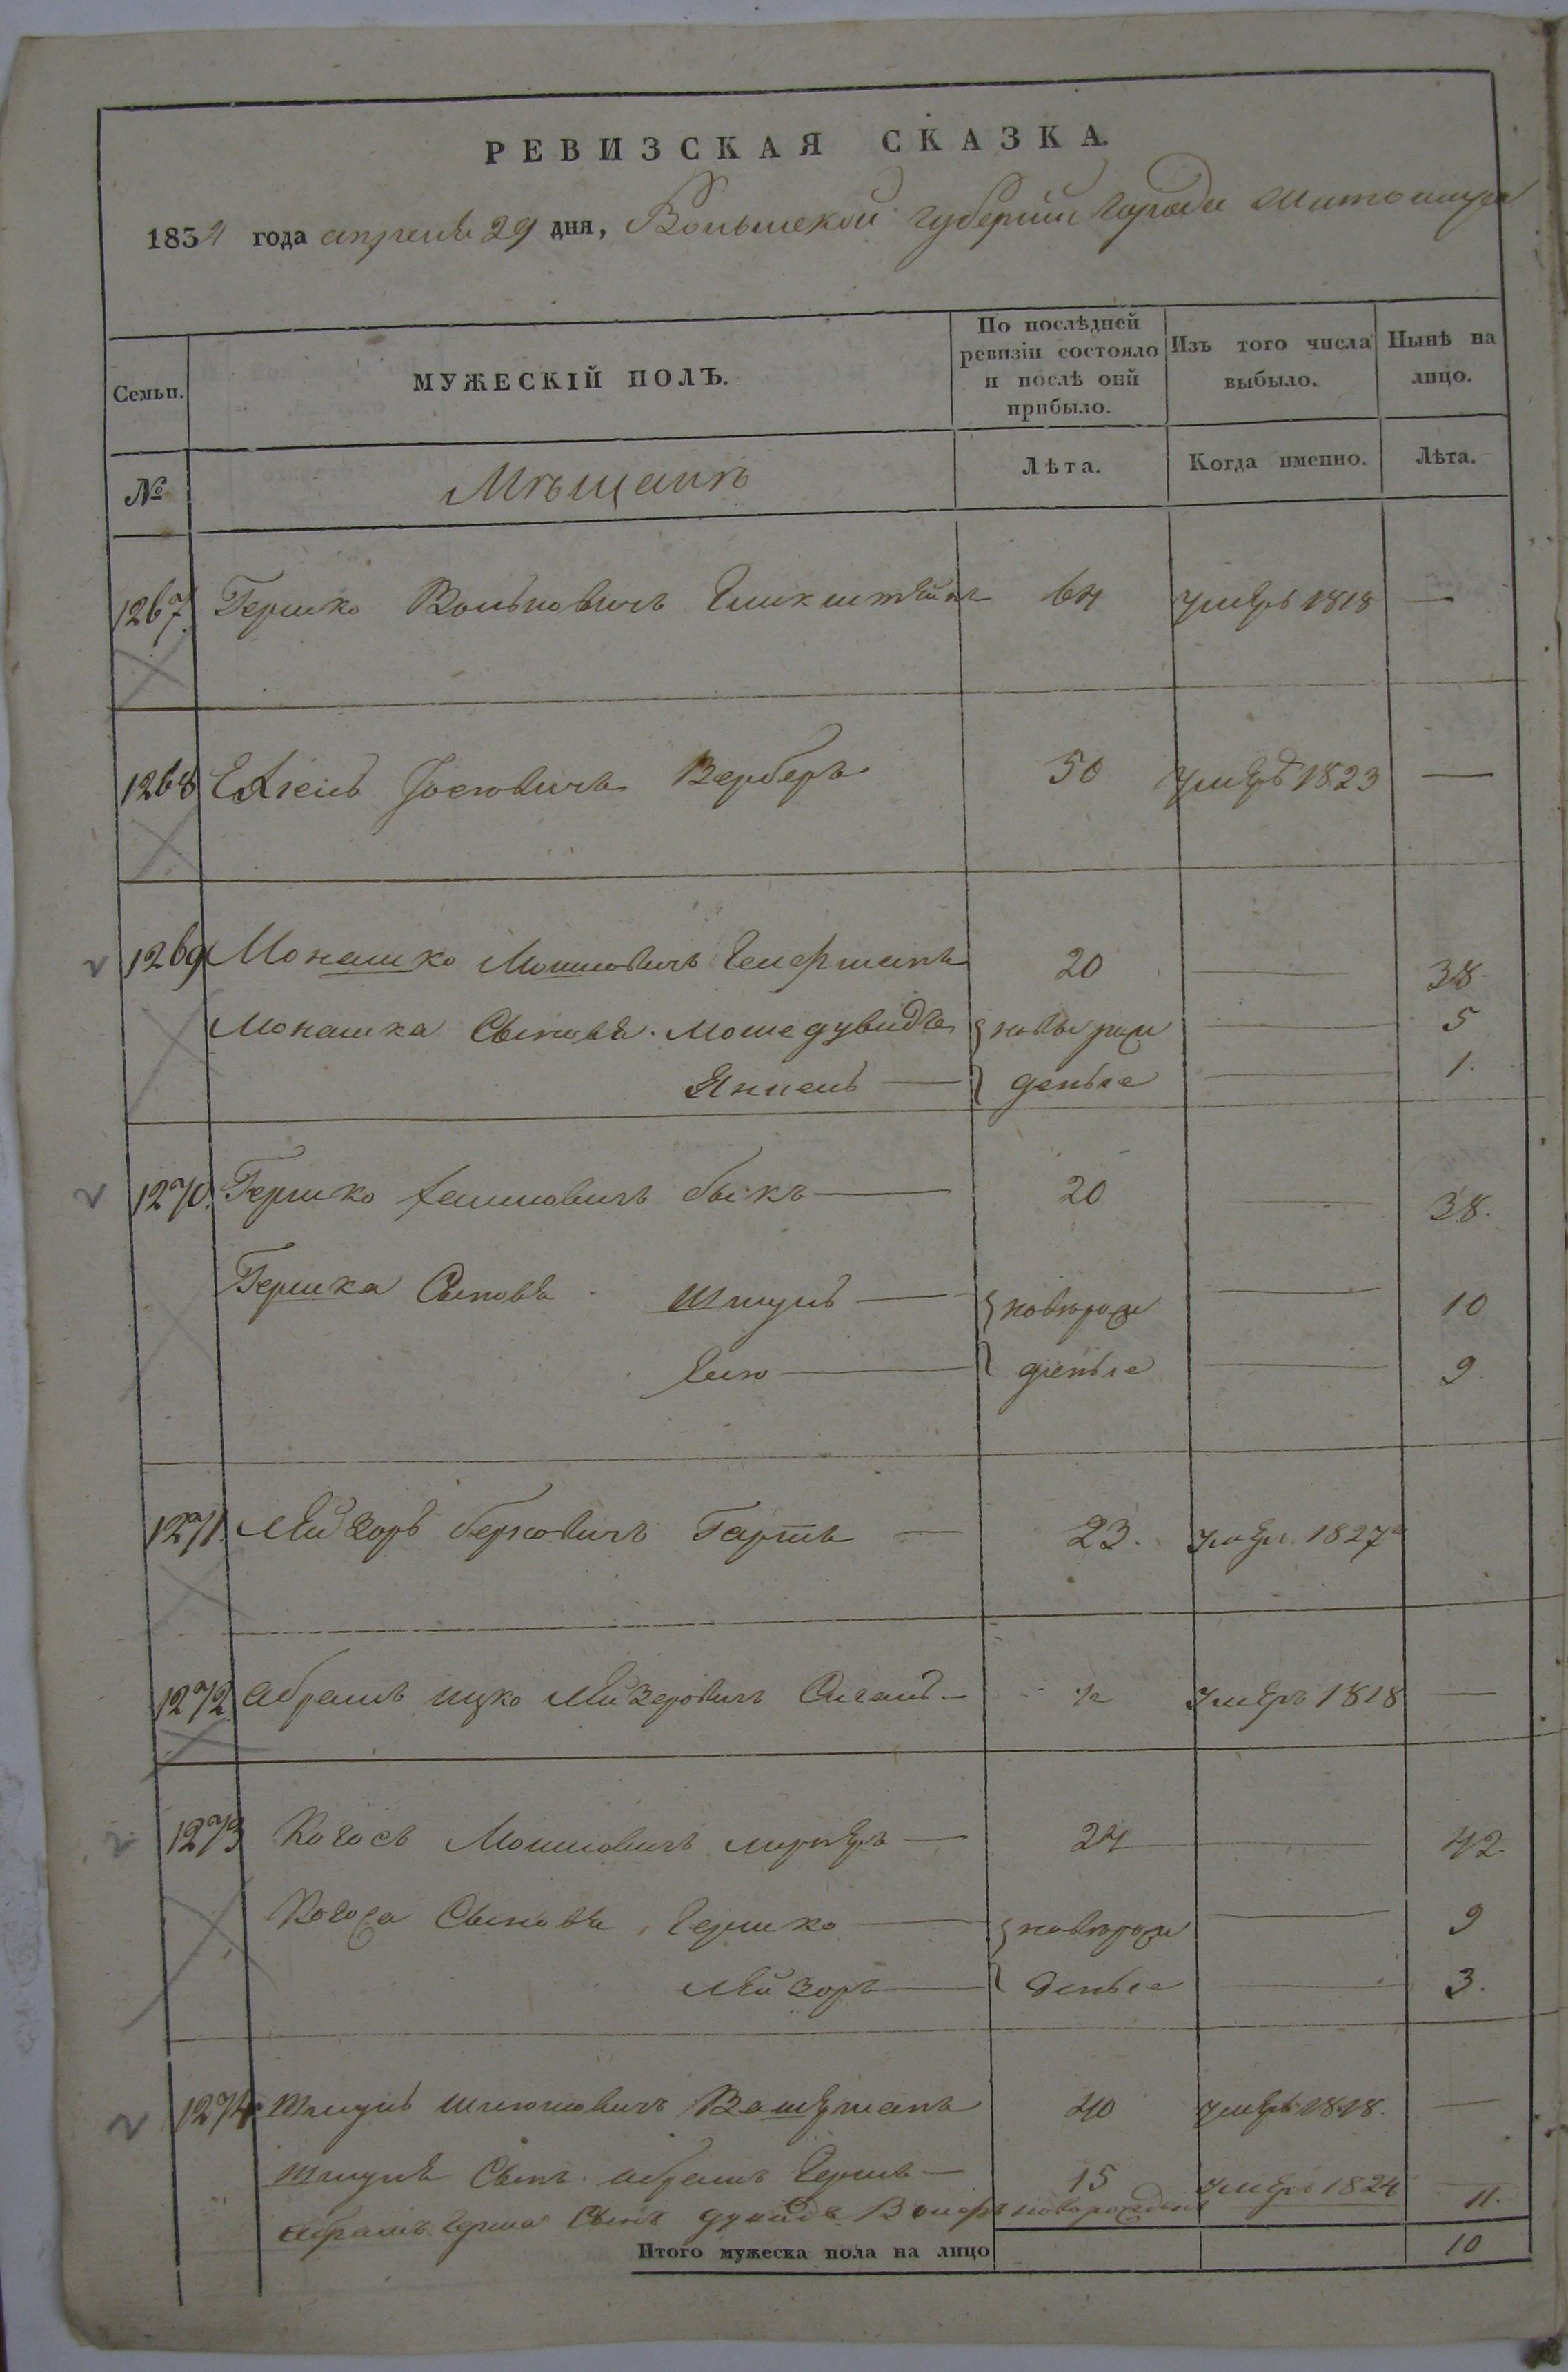 РЕВИЗСКАЯ СКАЗКА.
1834 года апреля 29 дня, Волынской губернии города Житомира
Семьи.
МУЖЕСКІЙ ПОЛЪ.
По послѣдней ревизіи состояло и послѣ оной прибыло.
Изъ того числа выбыло.
Нынѣ на лицо.
№
Мѣщанъ
Лѣта.
Когда именно.
Лѣта.
1267 Гершко Вольковичъ 64 умеръ 1818 —
1268 Іосіовичъ Верберъ 50 умеръ 1823 —
1269 Монашко Мошковичъ Гелфманъ 20 — 38.
Монашка Сыновья Мошедувидъ } новорож — 5
Янкель — } денные — 1.
1270. Гершко Хаимовичъ быкъ — 20 — 38.
Гершка Сыновья Шмуль — } новорож — 10
— } денные — 9
1271. Лейзоръ берковичъ Гартъ — 23. умер. 1827
1272 абрамъ ицко Лейзеровичъ — умеръ 1818 —
1273 Мошковичъ — 24 — 42.
Сыновья, Гершко — } новорож — 9
Лейзоръ — } денные — 3.
1274 Шмуль Шлиомовичъ Васерманъ 40 умеръ 1818. —
Шмуля Сынъ абрамъ Гершъ — 15 умеръ 1824 —
абрамъ герша Сынъ дувидъ Волфъ новорожден 11.
Итого мужеска пола на лицо 10